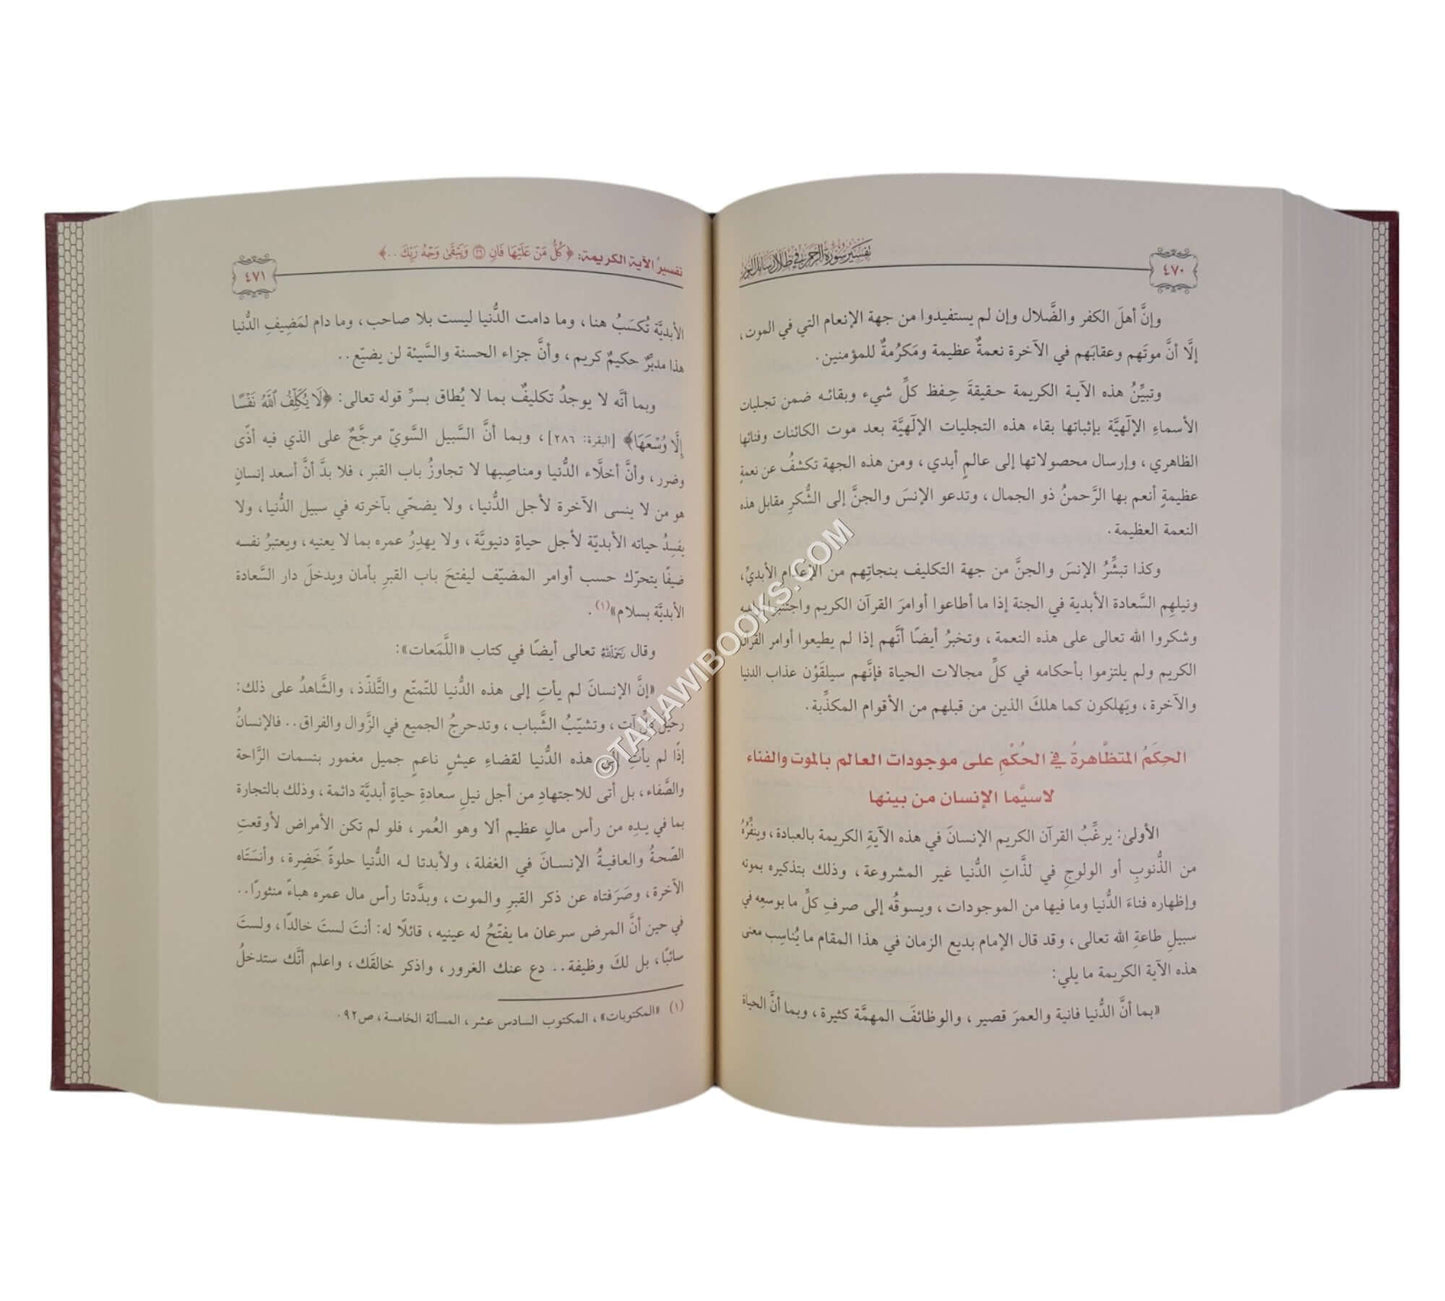 ٤٧٠
تفسير سورة الرحمن في ظلال رسائل النور
وإنَّ أهلَ الكفر والضَّلال وإن لم يستفيدوا من جهة الإنعام التي في الموت،
إلَّا أنَّ موتَهم وعقابَهم في الآخرة نعمةٌ عظيمة ومَكرُمةٌ للمؤمنين.
وتبيِّنُ هذه الآية الكريمة حقيقةَ حِفظ كلِّ شيء وبقائه ضمن تجليات
الأسماءِ الإلٰهيَّة بإثباتها بقاء هذه التجليات الإلٰهيَّة بعد موت الكائنات وفنائها
الظاهري، وإرسال محصولاتها إلى عالمٍ أبدي، ومن هذه الجهة تكشفُ عن نعمةٍ
عظيمةٍ أنعم بها الرَّحمنُ ذو الجمال، وتدعو الإنسَ والجنَّ إلى الشُّكرِ مقابل هذه
النعمة العظيمة.
وكذا تبشِّرُ الإنسَ والجنَّ من جهة التكليف بنجاتِهم من الإعدام الأبديِّ،
ونيلهِم السَّعادة الأبدية في الجنة إذا ما أطاعوا أوامرَ القرآن الكريم
وشكروا الله تعالى على هذه النعمة، وتخبرُ أيضًا أنَّهم إذا لم يطيعوا أوامر القرآن
الكريم ولم يلتزموا بأحكامه في كلِّ مجالات الحياة فإنَّهم سيلقَوْن عذاب الدنيا
والآخرة، ويَهلكون كما هلكَ الذين من قبلهم من الأقوام المكذِّبة.
الحِكَمُ المتظَّاهرةُ في الحُكْمِ على موجودات العالم بالموت والفناء
لاسيَّما الإنسان من بينها
الأولى: يرغِّبُ القرآن الكريم الإنسانَ في هذه الآيةِ الكريمة بالعبادة، وينفِّرُهُ
من الذُّنوبِ أو الولوجِ في لذَّاتِ الدُّنيا غير المشروعة، وذلك بتذكيره بموته
وإظهاره فناءَ الدُّنيا وما فيها من الموجودات، ويسوقُه إلى صرفِ كلِّ ما بوسعِه في
سبيلِ طاعةِ الله تعالى، وقد قال الإمام بديع الزمان في هذا المقام ما يُناسِب معنى
هذه الآية الكريمة ما يلي:
«بما أنَّ الدُّنيا فانية والعمرَ قصير، والوظائفَ المهمَّة كثيرة، وبما أنَّ الحياة
تفسيرُ الآية الكريمة: ﴿كُلُّ مَنْ عَلَيْهَا فَانٍ ۝٢٦ وَيَبْقَىٰ وَجْهُ رَبِّكَ..﴾
٤٧١
الأبديَّة تُكسَبُ هنا، وما دامت الدُّنيا ليست بلا صاحب، وما دام لمَضِيفِ الدُّنيا
هذا مدبرٌ حكيمٌ كريم، وأنَّ جزاء الحسنة والسَّيئة لن يضيّع..
وبما أنَّه لا يوجدُ تكليفٌ بما لا يُطاق بسرِّ قوله تعالى: ﴿لَا يُكَلِّفُ ٱللَّهُ نَفْسًا
إِلَّا وُسْعَهَا﴾ [البقرة: ٢٨٦]، وبما أنَّ السَّبيل السَّويّ مرجَّحٌ على الذي فيه أذًى
وضرر، وأنَّ أخلَّاء الدُّنيا ومناصِبها لا تجاوزُ باب القبر، فلا بدَّ أنَّ أسعد إنسانٍ
هو من لا ينسى الآخرة لأجل الدُّنيا، ولا يضحّي بآخرته في سبيل الدُّنيا، ولا
يفسِدُ حياته الأبديّة لأجل حياةٍ دنيويَّة، ولا يهدِرُ عمره بما لا يعنيه، ويعتبرُ نفسه
ضيفًا يتحرّك حسب أوامر المضيّف ليفتحَ باب القبرِ بأمان ويدخلَ دار السَّعادة
الأبديَّة بسلام»(١).
وقال رَحِمَهُ اللهُ تعالى أيضًا في كتاب «اللَّمَعات»:
«إنَّ الإنسانَ لم يأتِ إلى هذه الدُّنيا للتّمتّع والتَّلذّذ، والشَّاهدُ على ذلك:
رحيل كل آت، وتشيّبُ الشَّباب، وتدحرجُ الجميع في الزَّوال والفراق.. فالإنسانُ
إذًا لم يأتِ إلى هذه الدُّنيا لقضاءِ عيشٍ ناعمٍ جميل مغمور بنسمات الرَّاحة
والصَّفاء، بل أتى للاجتهادِ من أجل نيلِ سعادةِ حياةٍ أبديَّة دائمة، وذلك بالتجارة
بما في يـدِه من رأس مالٍ عظيم ألا وهو العُمر، فلو لم تكن الأمراض لأوقعتِ
الصّحةُ والعافيـةُ الإنسـانَ في الغفلة، ولأبدتا لـه الدُّنيا حلوةً خَضِرة، وأنسَتَاه
الآخرة، وصَرَفتاه عن ذكر القبرِ والموت، وبدَّدتا رأس مال عمره هباءً منثورًا..
في حين أنَّ المرض سرعان ما يفتّحُ له عينيه، قائلًا له: أنتَ لستَ خالدًا، ولستَ
سائبًا، بل لكَ وظيفة.. دع عنك الغرور، واذكر خالقَك، واعلم أنَّك ستدخلُ
(١) «المكتوبات»، المكتوب السادس عشر، المسألة الخامسة، ص٩٢.
©TAHAWIBOOKS.COM